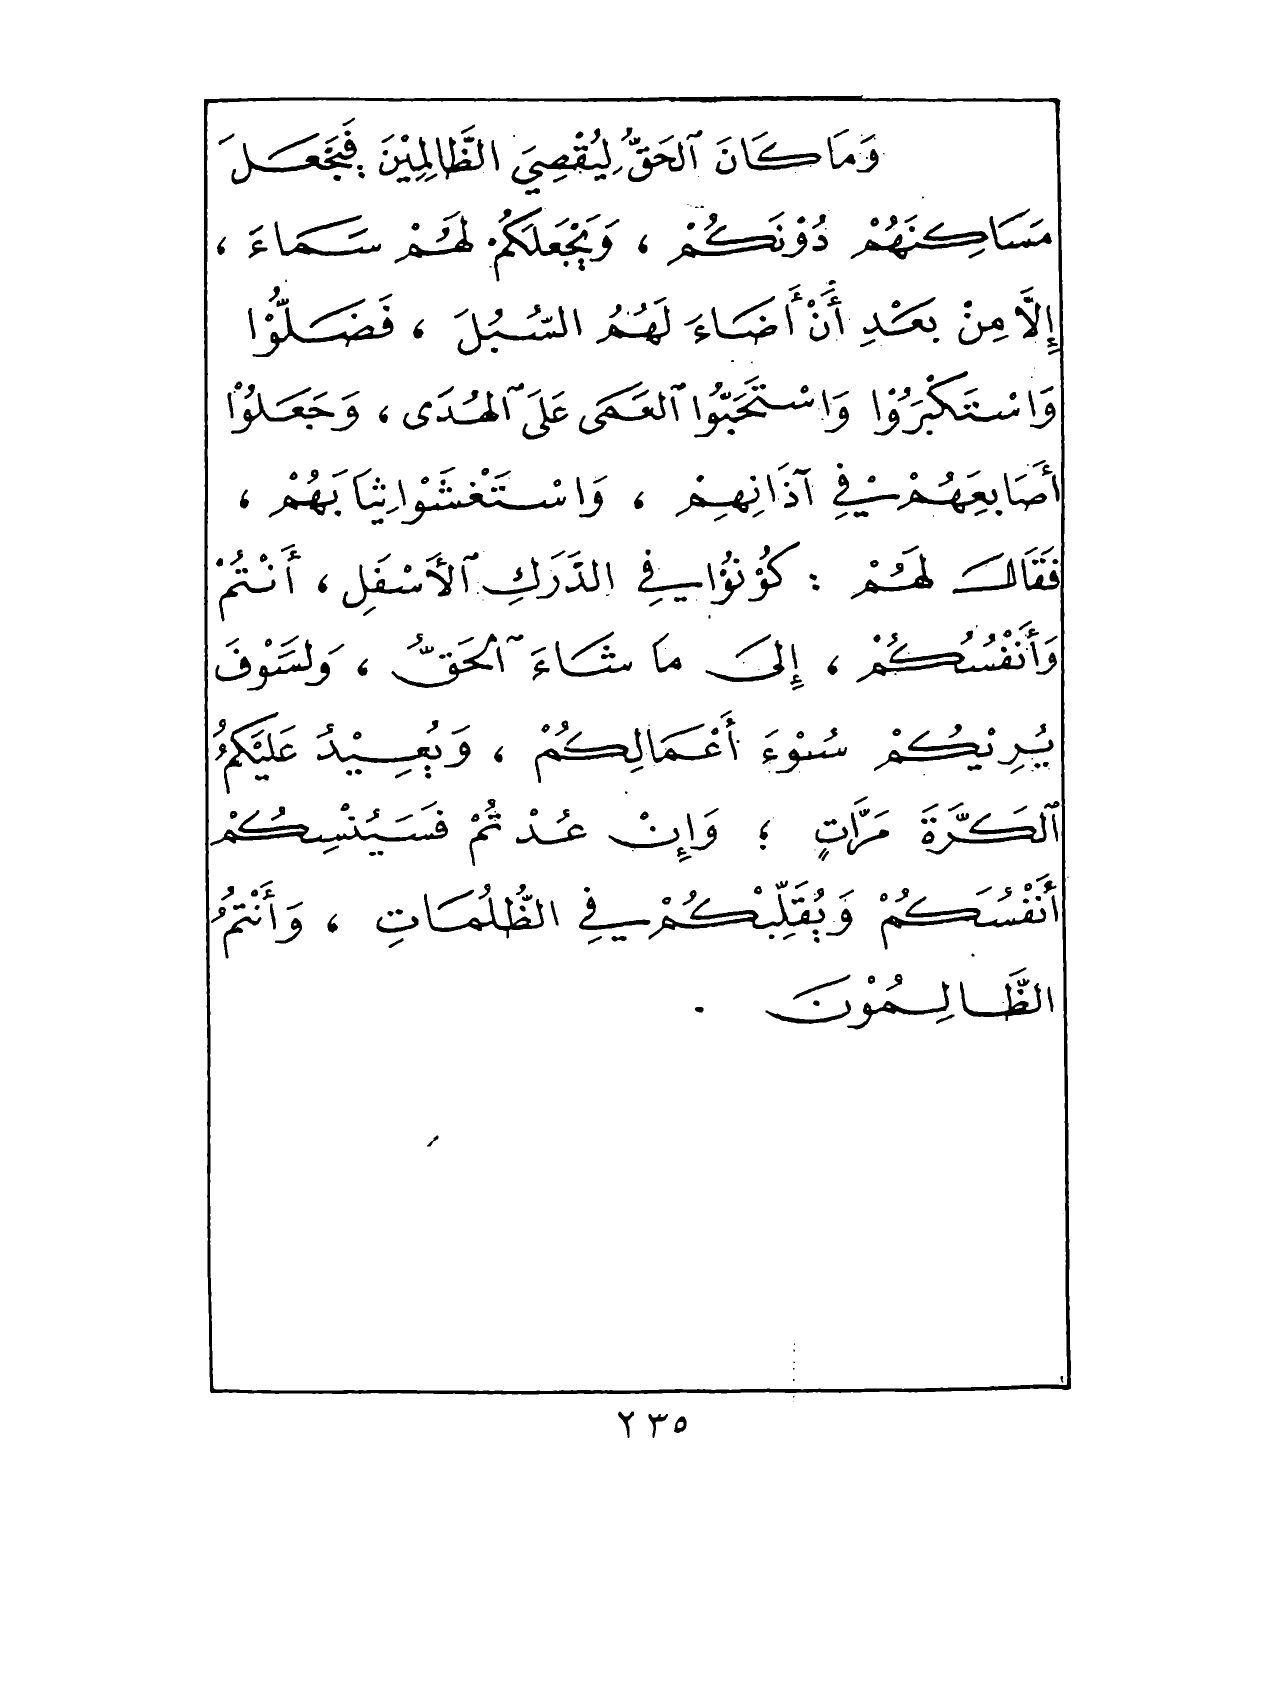 وَمَا كَانَ ٱلحَقُّ لِيُقْصِيَ الظَّالِمِيْنَ فَيَجْعَلَ
مَسَاكِنَهُمْ دُوْنَكُمْ ، وَيَجْعَلَكُمْ لَهُمْ سَمَاءَ ،
إِلَّا مِنْ بَعْدِ أَنْ أَضَاءَ لَهُمُ السُّبُلَ ، فَضَلُّوْا
وَاسْتَكْبَرُوْا وَاسْتَحَبُّوا ٱلعَمَى عَلَى ٱلهُدَى ، وَجَعَلُوْا
أَصَابِعَهُمْ فِي آذَانِهِمْ ، وَاسْتَغْشَوْا ثِيَابَهُمْ ،
فَقَالَ لَهُمْ : كُوْنُوْا فِي الدَّرَكِ ٱلأَسْفَلِ ، أَنْتُمْ
وَأَنْفُسُكُمْ ، إِلَىَ مَا شَاءَ ٱلحَقُّ ، وَلَسَوْفَ
يُرِيْكُمْ سُوْءَ أَعْمَالِكُمْ ، وَيُعِيْدُ عَلَيْكُمُ
ٱلكَرَّةَ مَرَّاتٍ ؛ وَإِنْ عُدْتُمْ فَسَيُنْسِكُمْ
أَنْفُسَكُمْ وَيُقَلِّبْكُمْ فِي الظُّلُمَاتِ ، وَأَنْتُمُ
الظَّالِمُوْنَ .
٢٣٥